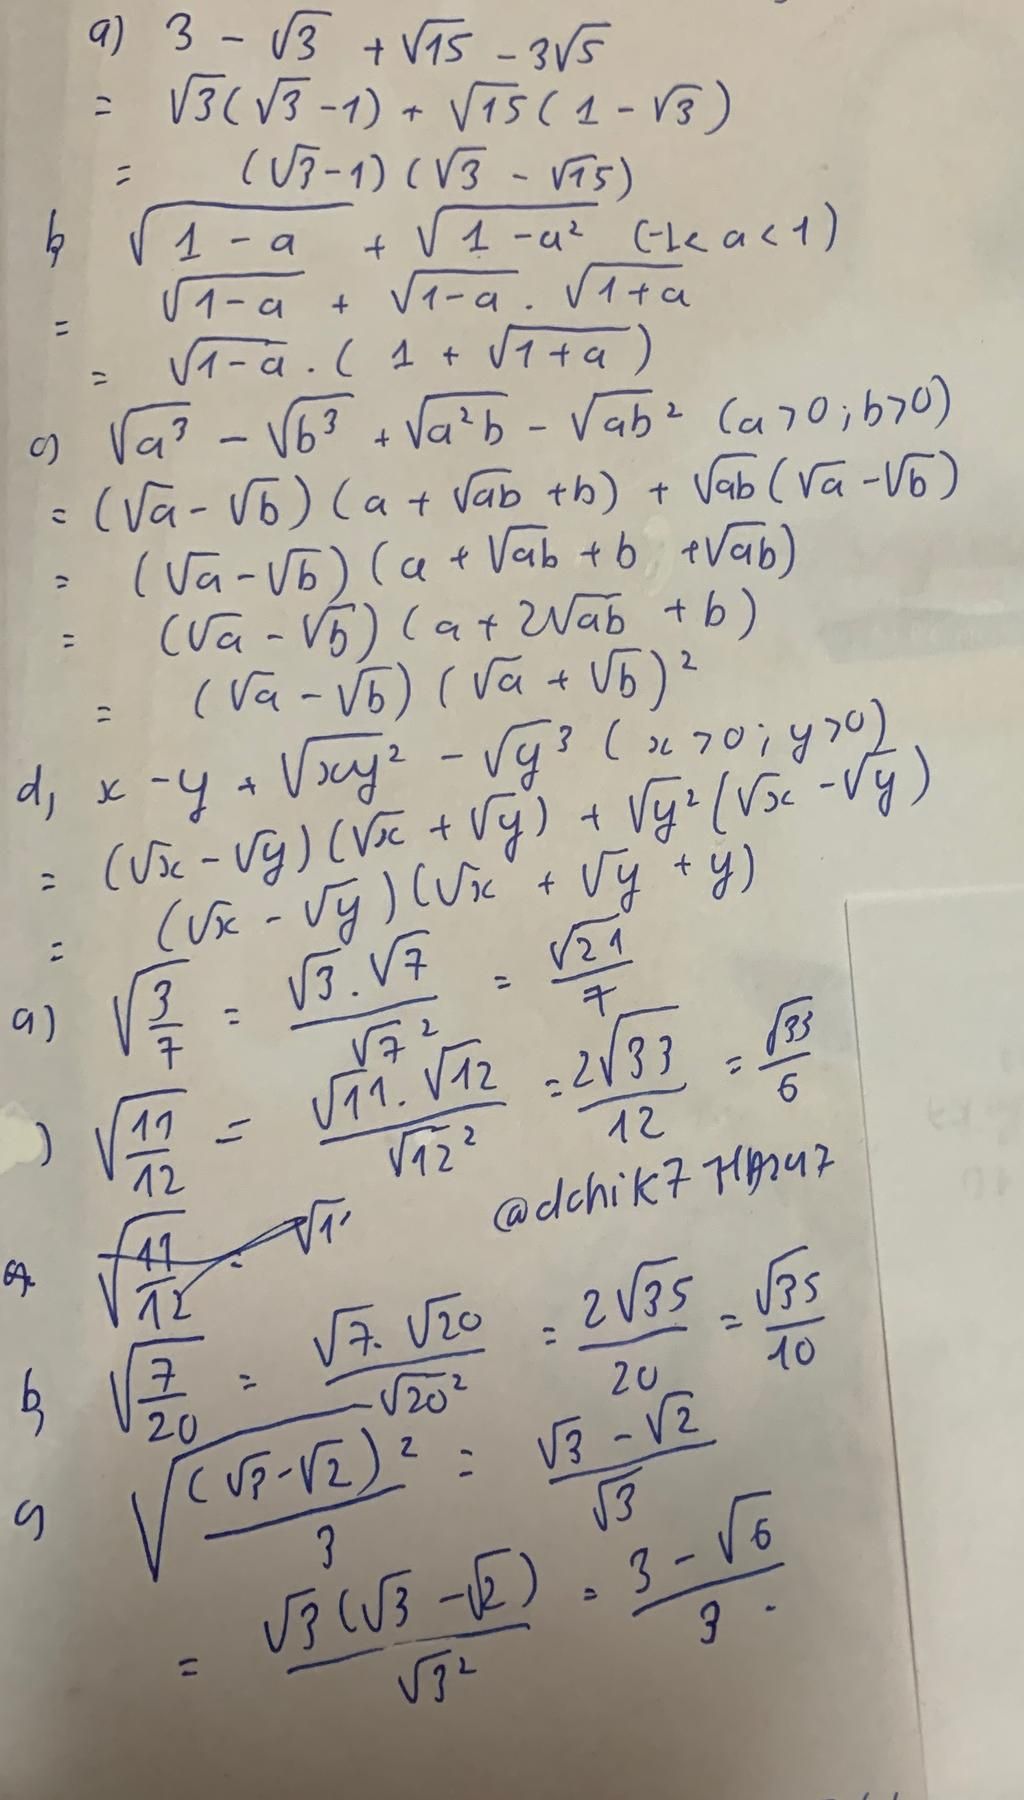 a) 3 - √3 + √15 - 3√5
= √3(√3-1) + √15(1-√3)
= (√3-1)(√3 - √15)
b, √(1-a) + √(1-a²) (-1< a < 1)
= √(1-a) + √(1-a) . √(1+a)
= √(1-a) . (1 + √(1+a))
c) √a³ - √b³ + √(a²b) - √(ab²) (a>0; b>0)
= (√a - √b)(a + √ab + b) + √ab(√a - √b)
= (√a - √b)(a + √ab + b + √ab)
= (√a - √b)(a + 2√ab + b)
= (√a - √b)(√a + √b)²
d, x - y + √(xy²) - √y³ (x>0; y>0)
= (√x - √y)(√x + √y) + √y²(√x - √y)
= (√x - √y)(√x + √y + y)
a) √(3/7) = (√3.√7)/√7² = √21/7
) √(11/12) = (√11.√12)/√12² = 2√33/12 = √33/6
@dchik7
√(11/12) = √1
b, √(7/20) = (√7.√20)/√20² = 2√35/20 = √35/10
c) √((√3-√2)²/3) = (√3 - √2)/√3
= √3(√3 - √2)/√3² = (3 - √6)/3 .